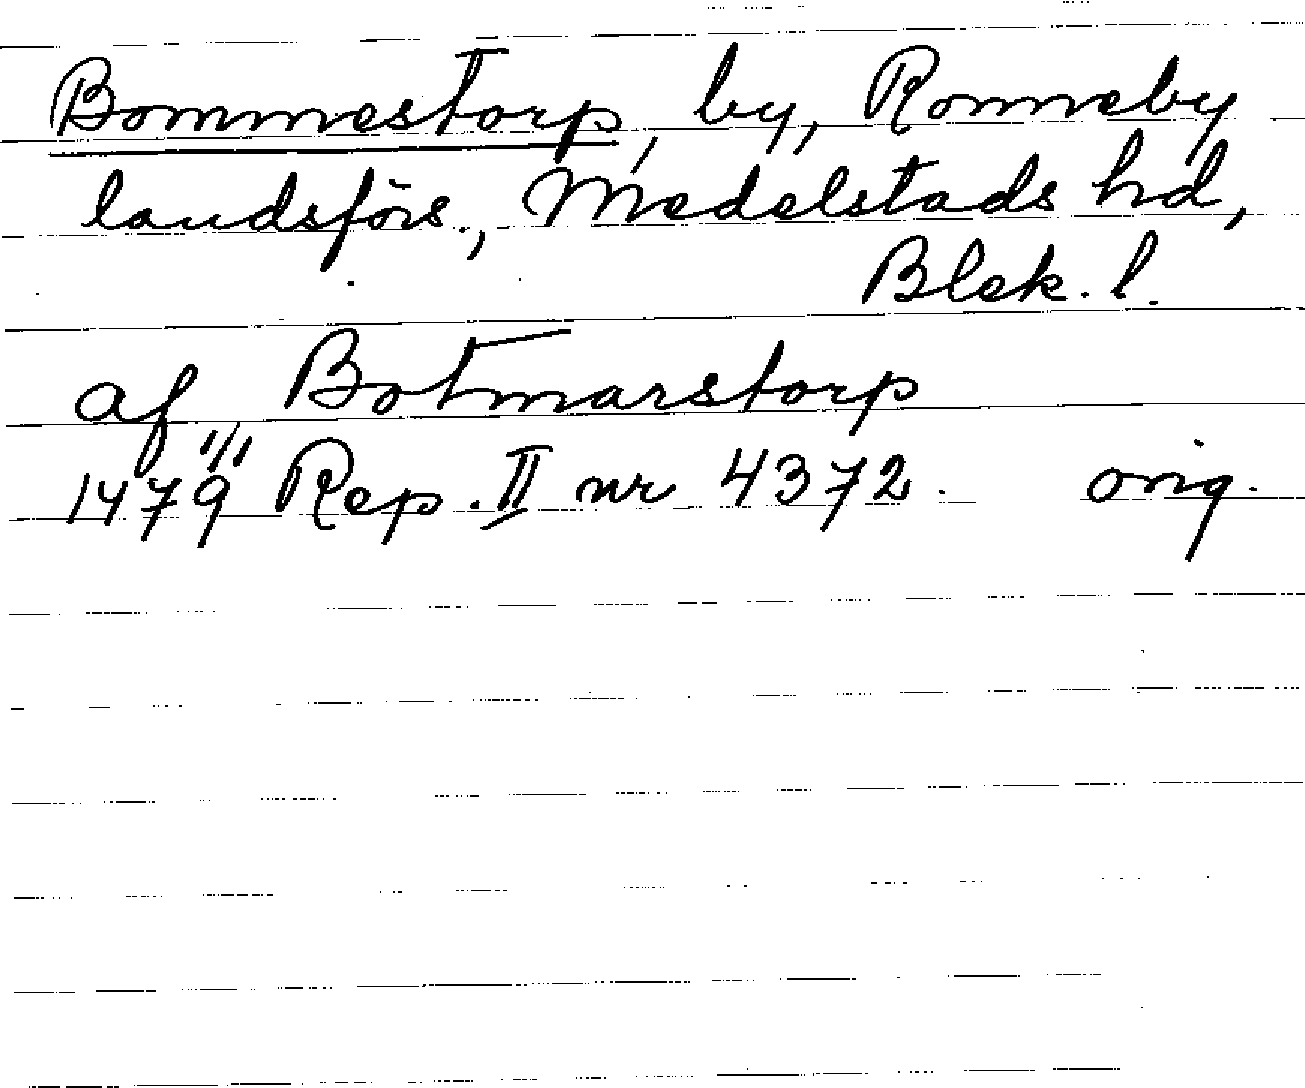 Bommestorp, by, Ronneby
landsförs., Medelstads hd,
Blek. l.
af Botmarstorp
1479 1/1 Rep. II nr 4372. orig.